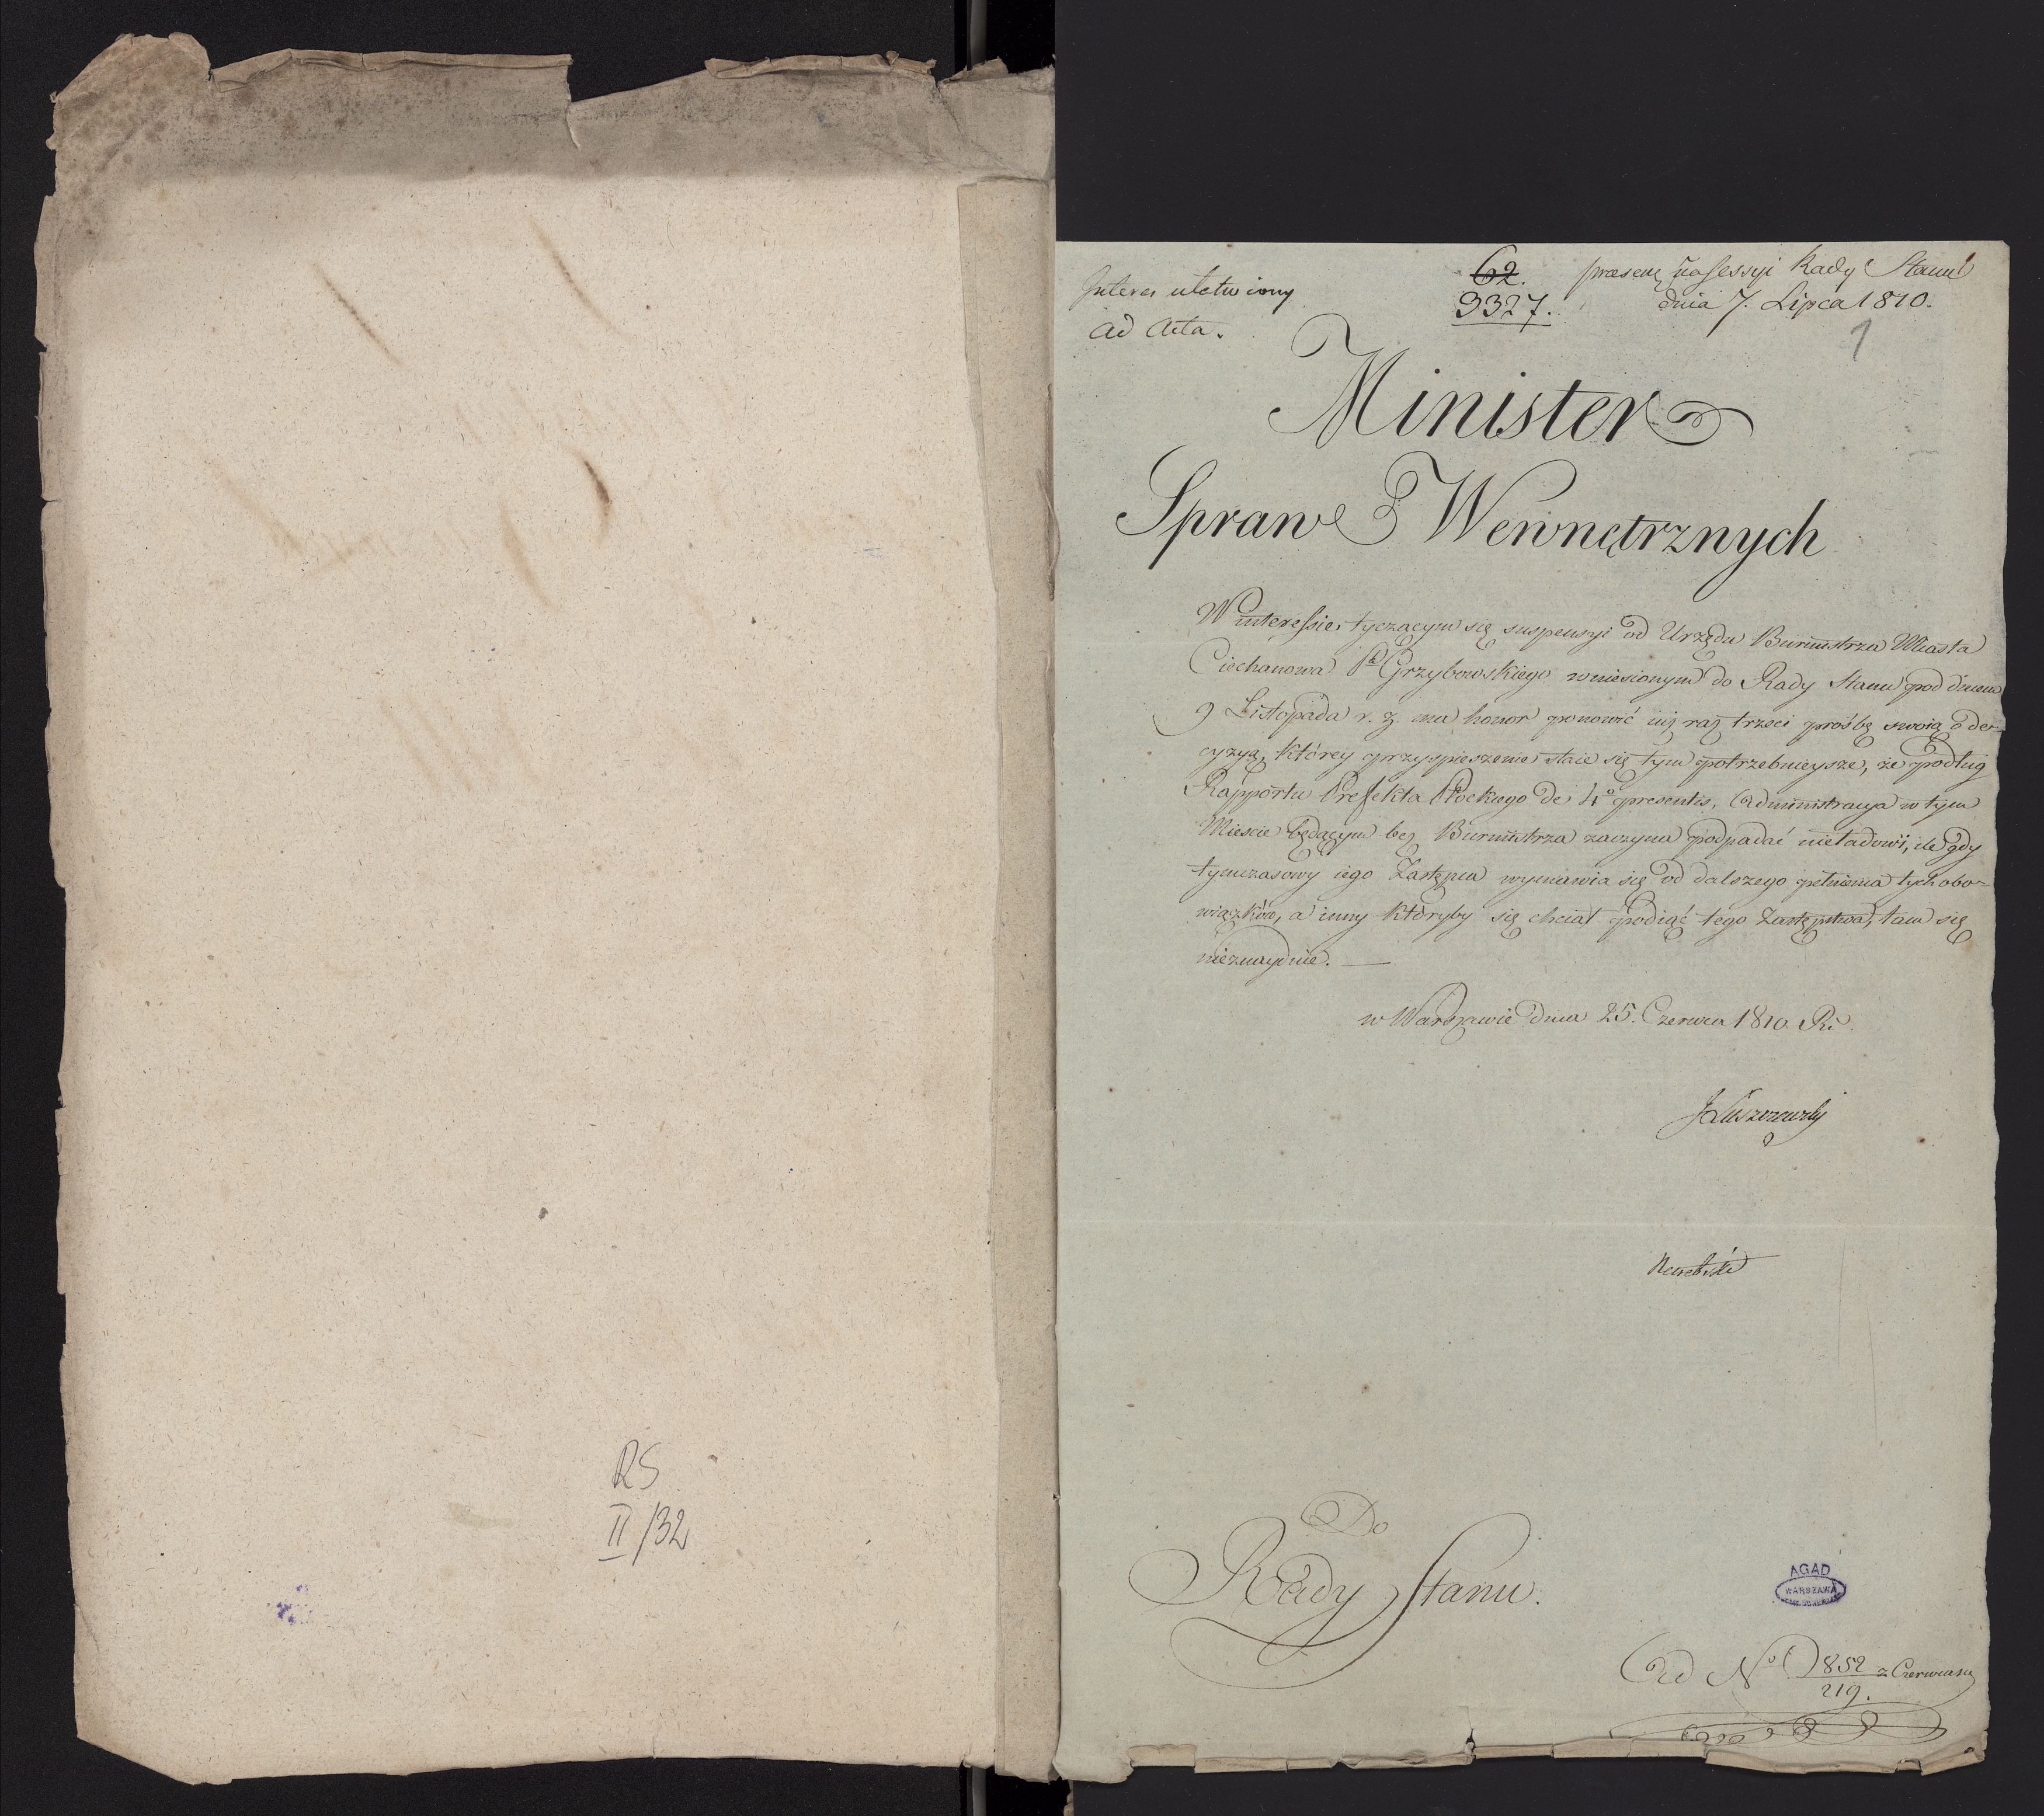 RS
II/32
Interes ułatwiony
ad Acta.
62.
3327.
praesent na sessyi Rady Stanu
dnia 7. Lipca 1810.
1
Minister
Spraw Wewnętrznych
W interessie, tyczącym się suspensyi od Urzędu Burmistrza Miasta
Ciechanowa Pa Grzybowskiego wniesionym do Rady Stanu pod dniem
9 Listopada r. z. ma honor ponowić iuż raz trzeci prośbę swoią o de-
cyzyą, którey przyspieszenie staie się tym potrzebnieysze, że podług
Rapportu Prefekta Płockiego de 4o presentis, Administracya w tym
Mieście będącym bez Burmistrza zaczyna podpadać nieładowi, ile gdy
tymczasowy iego Zastępca wymawia się od dalszego pełnienia tych obo-
wiązków, a inny któryby się chciał podiąć tego Zastępstwa, tam się
nieznayduie. —
w Warszawie dnia 25. Czerwca 1810. Ru
J Łuszczewski
Do
Rady Stanu.
AGAD
WARSZAWA
Ad No D 852 z Czerwca
219.